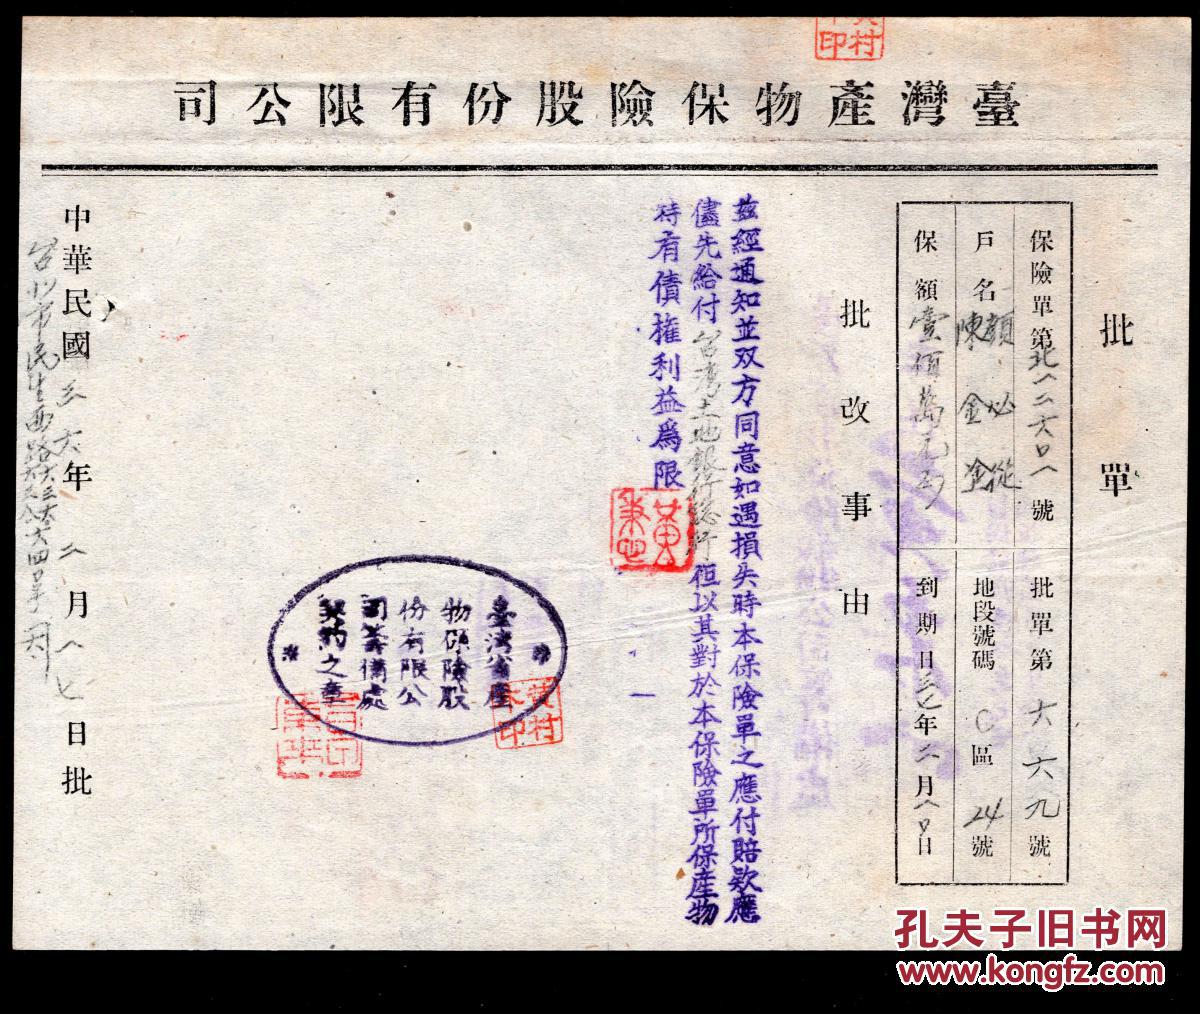 臺灣產物保險股份有限公司
批單
保險單第北一二六〇一號 批單第六六九號
戶名 顏必從 陳金 地段號碼C區24號
保額壹佰萬元 到期日三七年二月 日
批改事由
茲經通知並双方同意如遇損失時本保險單之應付賠欵應
儘先給付台灣土地銀行總行但以其對於本保險單所保產物
持有債權利益爲限
臺灣省產
物保險股
份有限公
司籌備處
契約之章
黃村
印
中華民國三六年二月 日批
台北市民生西路
孔夫子旧书网
www.kongfz.com